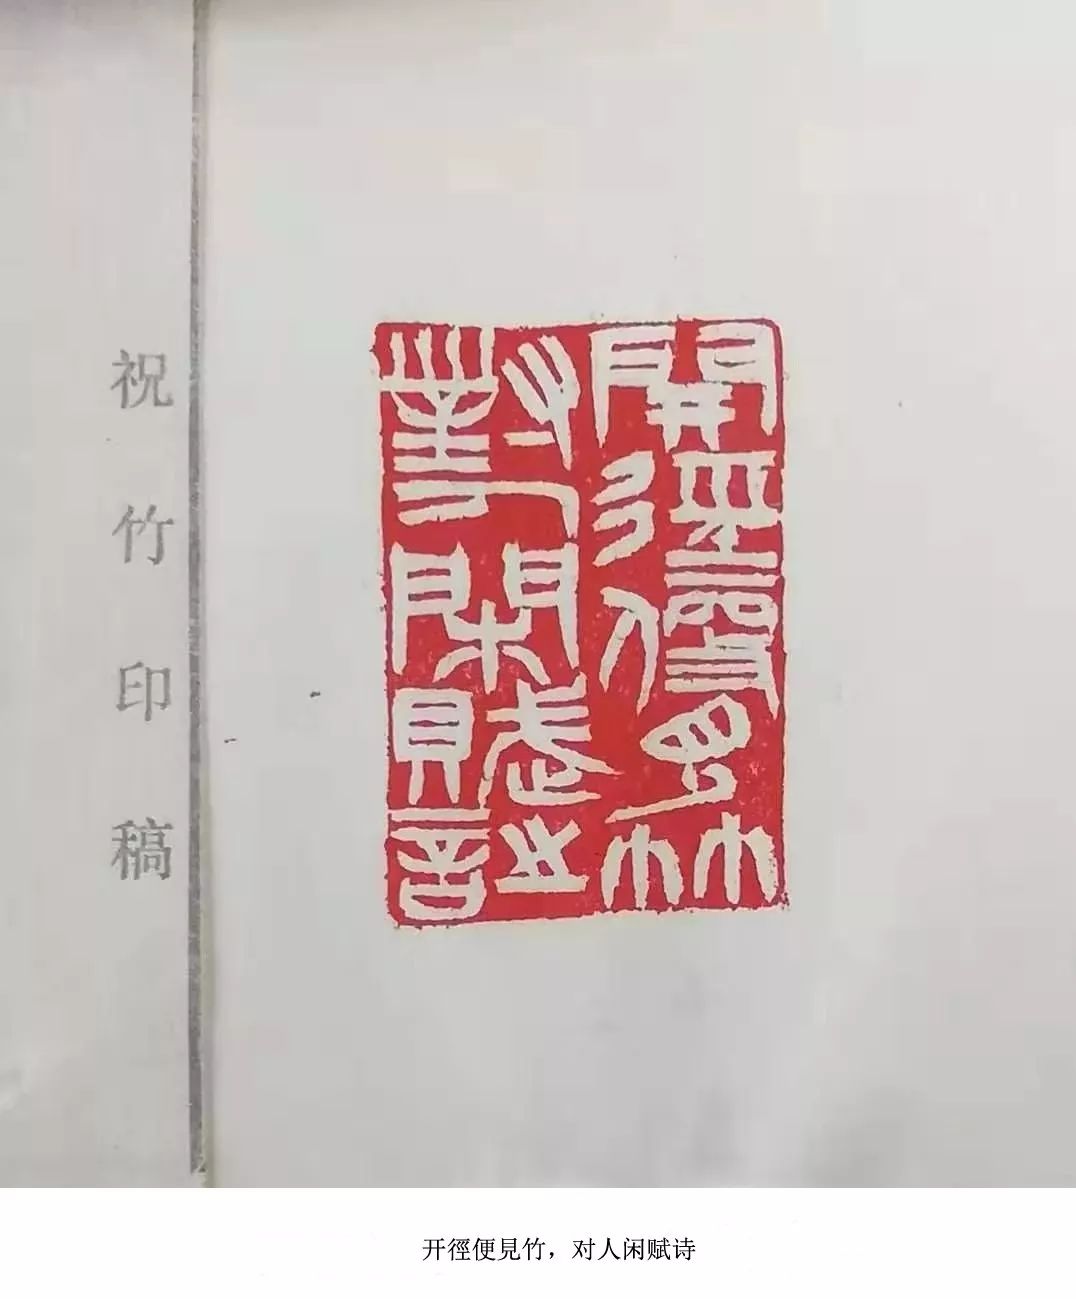 開徑便見竹
對人閑賦詩
祝竹印稿
开徑便見竹，对人闲赋诗